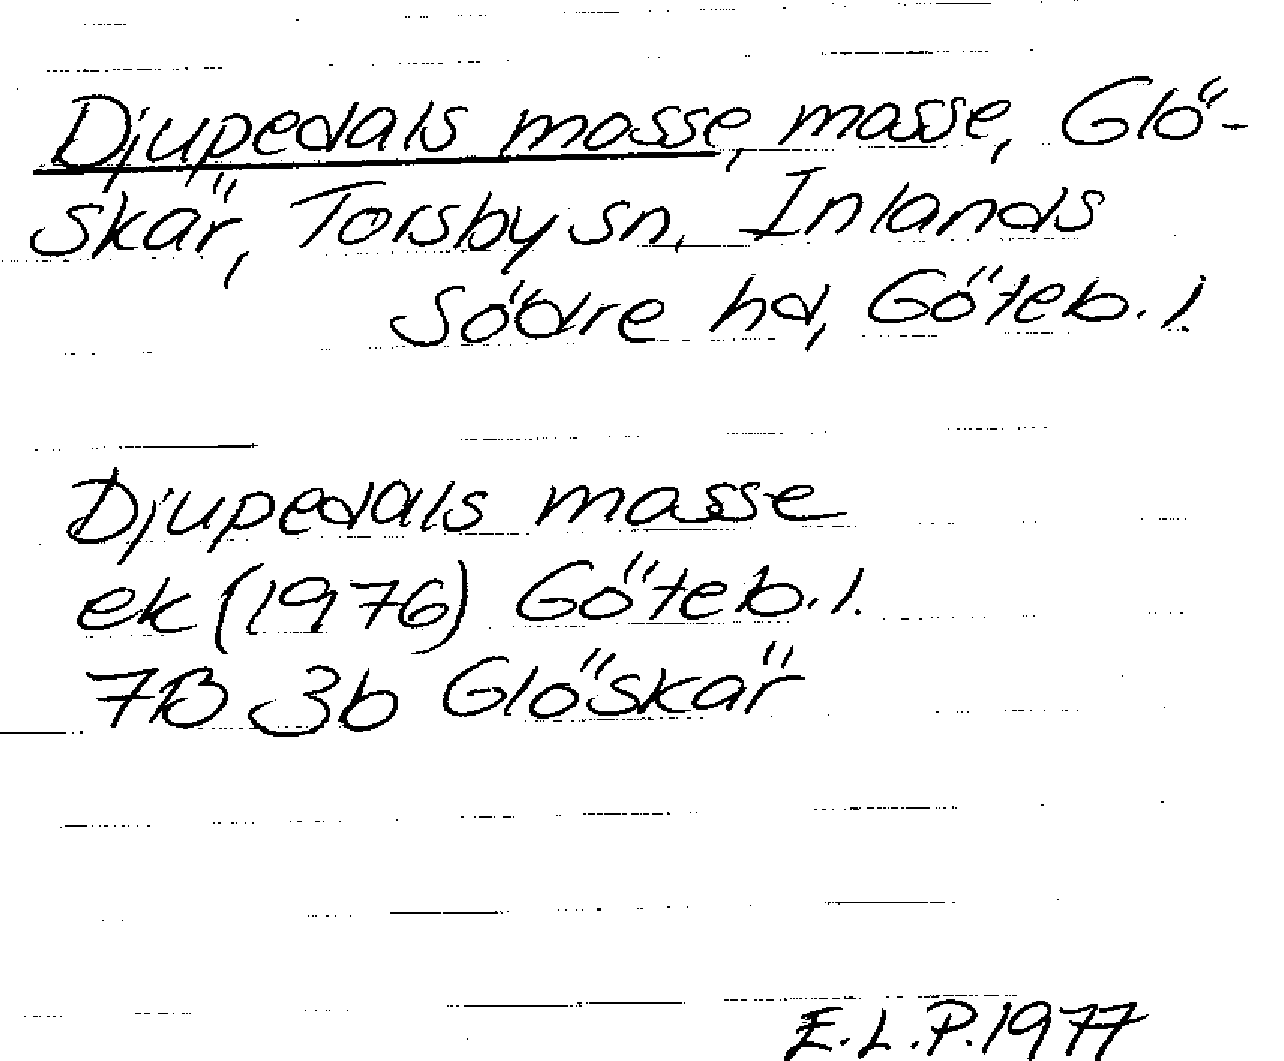 Djupedals mosse, mosse, Glö-
skär, Torsby sn, Inlands
Södre hd, Göteb. l
Djupedals mosse
ek (1976) Göteb. l.
7B 3b Glöskär
E.L.P. 1977